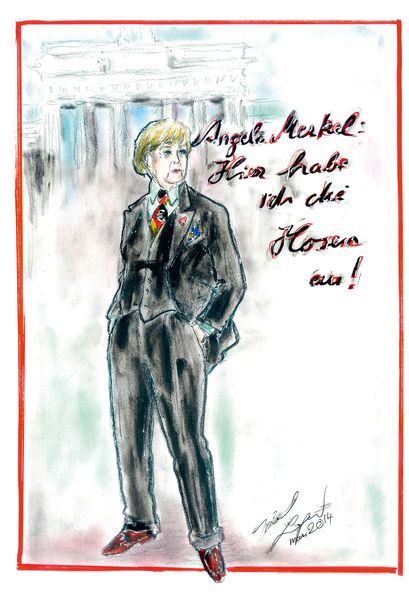 Angela Merkel:
Hier habe
ich die
Hosen
an!
2014